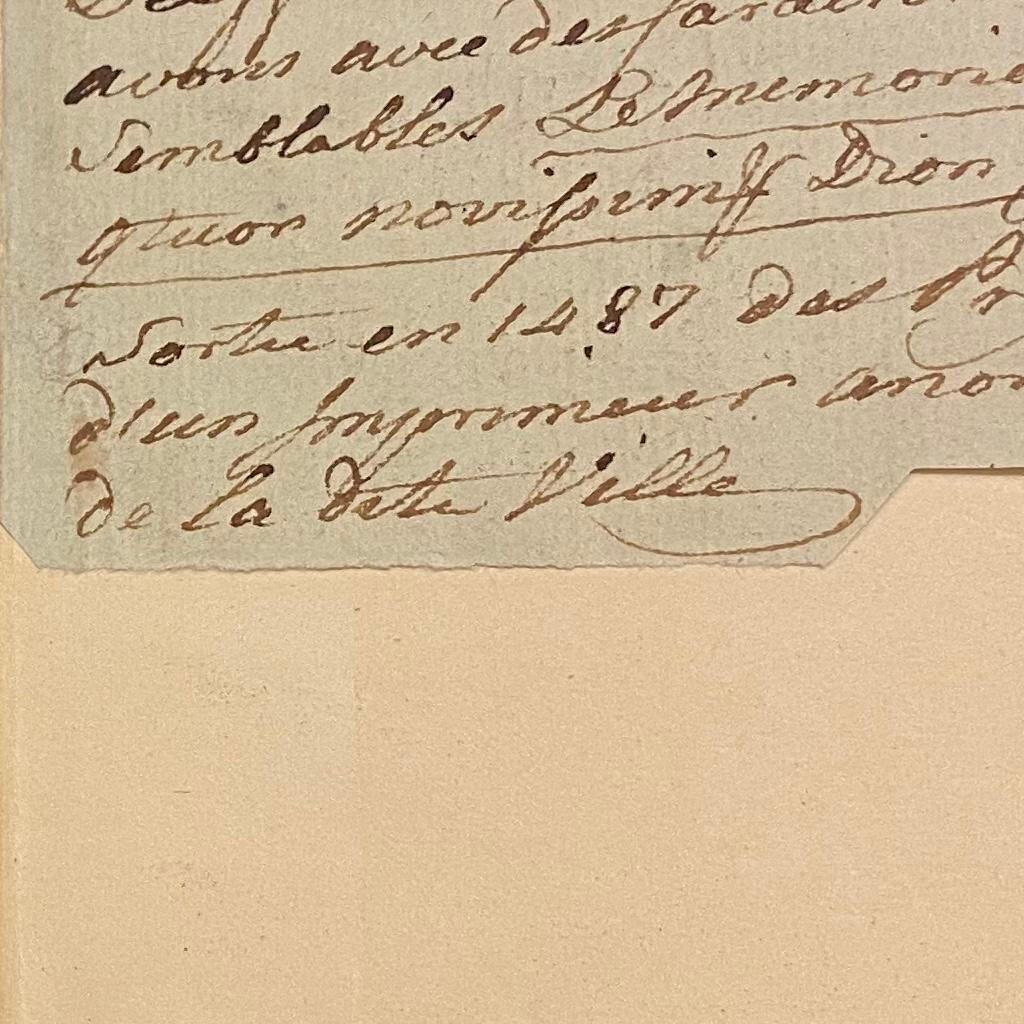 avons avec des caracteres
Semblables Le memorie
qtuor novissimis Dion
Sortie en 1487 des Pr
d'un Imprimeur anon
de la dite Ville